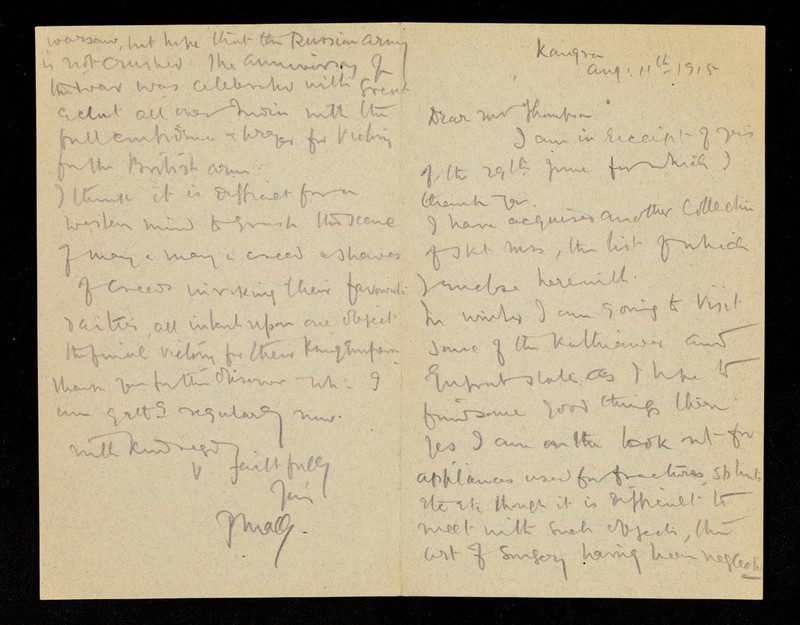 Kangra
Aug. 11th 1915
Dear Mr Thompson
I am in receipt of yours
of the 29th June for which I
thank you.
I have acquired another Collection
of Skt Mss, the list of which
I enclose herewith.
In winter I am going to visit
some of the Kathiawar and
Gujrat state as I hope to
find some good things there.
Yes I am on the look out for
appliances used for fractures, splints
etc etc though it is difficult to
meet with such objects, the
art of Surgery having been neglected
Warsaw, but hope that the Russian army
is not crushed. The anniversary of
the war was celebrated with great
eclat all over India with the
full confidence & prayer for Victory
for the British arms.
I think it is difficult for a
western mind to grasp the scene
of many & many a creed & shades
of creeds invoking their favourite
deities, all intent upon one object
the final victory for their King Emperor.
Thank you for the Observer which I
am getting regularly now.
With kind regards
V faithfully
Yours
P Mall.